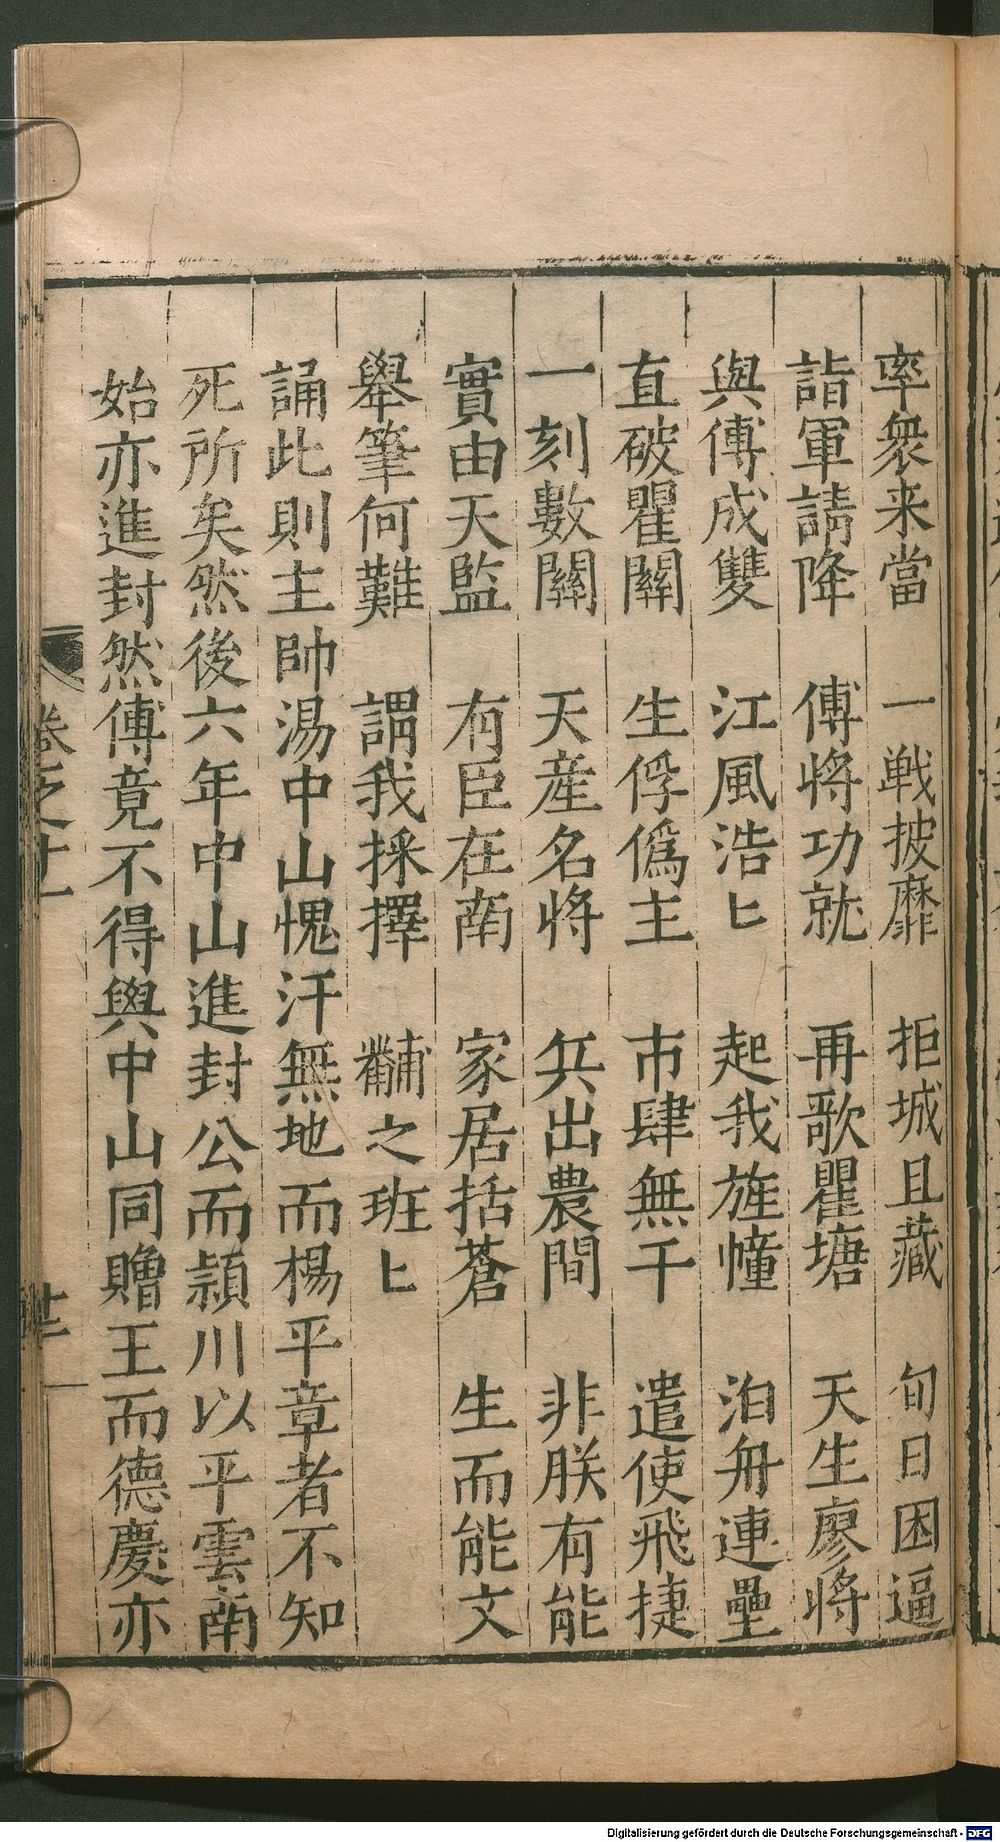 率衆来當　一戦披靡　拒城且藏　旬日困逼
詣軍請降　傅將功就　再歌瞿塘　天生廖將
與傅成雙　江風浩〻　起我旌幢　泊舟連壘
直破瞿關　生俘僞主　市肆無干　遣使飛捷
一刻數關　天産名將　兵出農間　非朕有能
實由天監　有臣在南　家居括蒼　生而能文
舉筆何難　謂我採擇　黼之班〻
誦此則主帥湯中山愧汗無地而楊平章者不知
死所矣然後六年中山進封公而頴川以平雲南
始亦進封然傅竟不得與中山同贈王而德慶亦
卷之十一
廿
Digitalisierung gefördert durch die Deutsche Forschungsgemeinschaft - DFG